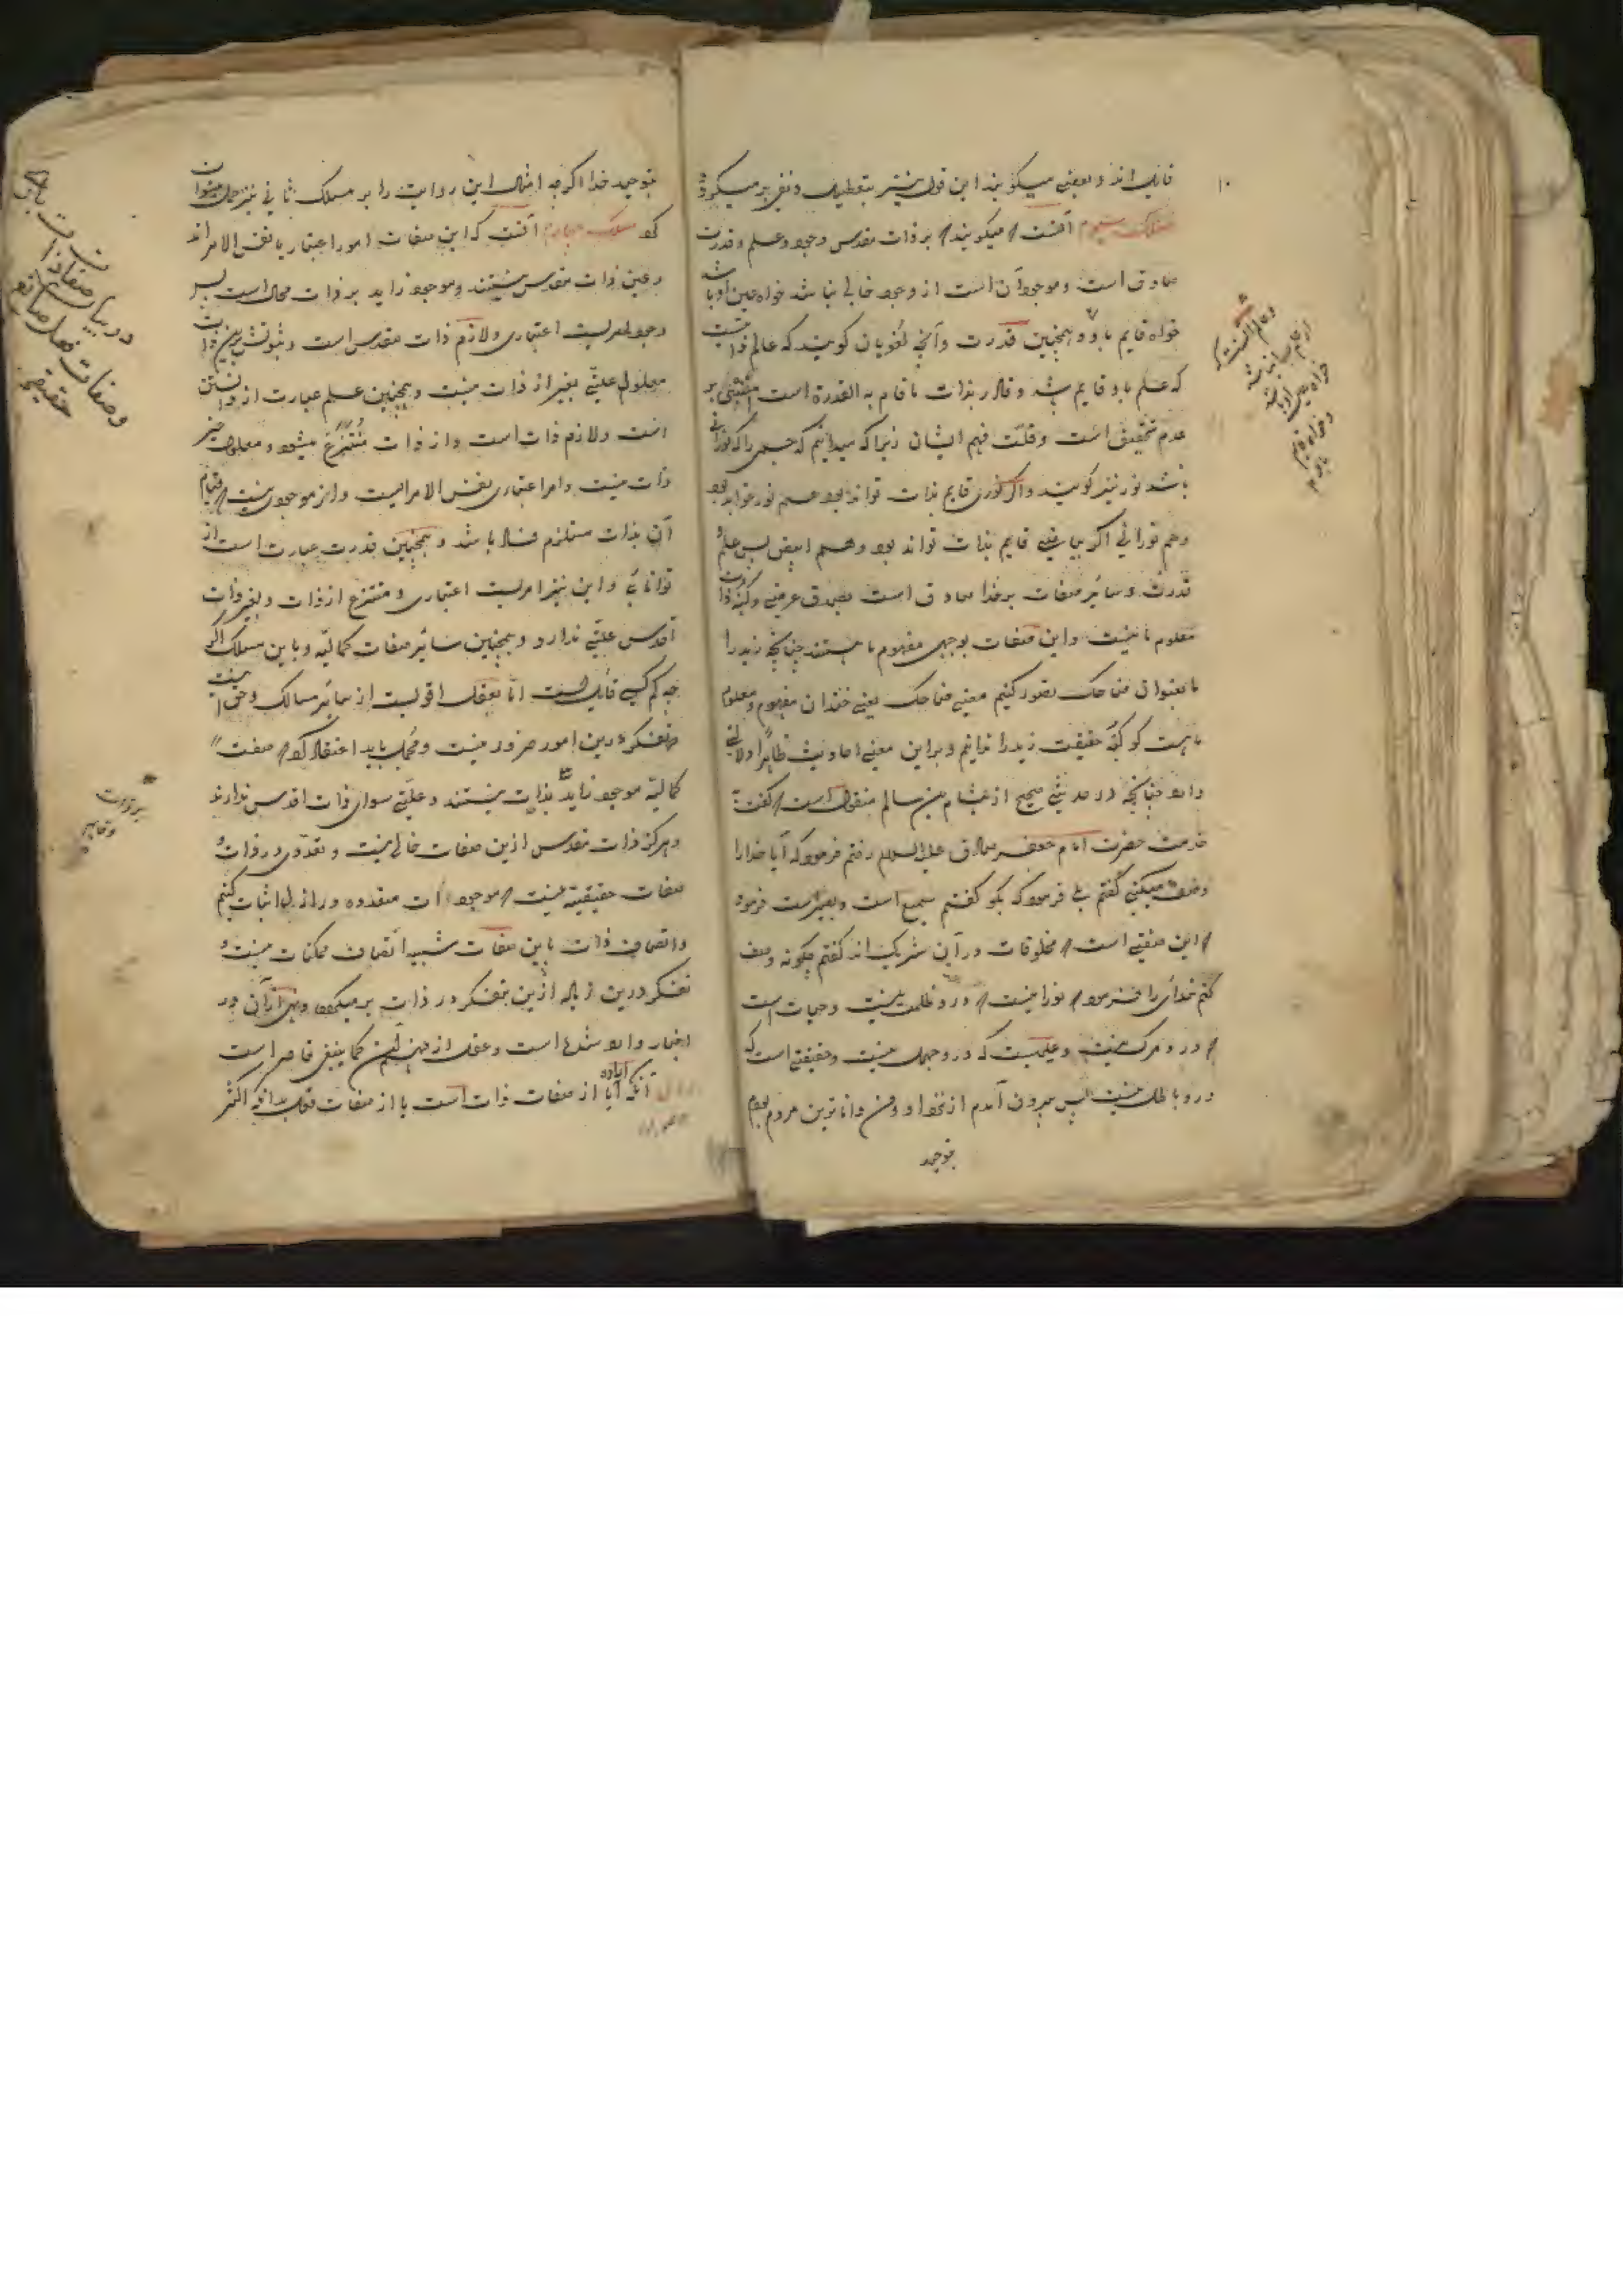 ۱۰
قایل اند و بعضی میگویند این قول بیشتر بتعطیل و نفی بر میگردد و
مسلک سیوم آنست که میگویند که بر ذات مقدس وجود و علم و قدرت
صادق است و موجود آن است از وجود خالی نباشد خواه عین او باشد
خواه قایم باو و همچنین قدرت و آنچه لغویان گویند که عالم ذاتیست
که علم باو قایم باشد و قادر بذات ما قام به القدرة است مبتنی بر
عدم تحقیق است و قلّت فهم ایشان زیرا که میدانیم که جسمی را که نورانی
باشد نور نیز گویند و اگر نوری قایم بذات تواند بود هم نور خواهد بود
و هم نورانی اگر بیاضی قایم بذات تواند بود و هم ابیض پس علم و
قدرت و سایر صفات بر خدا صادق است بصدق عرضی و کنه ذات
معلوم ما نیست و این صفات بوجهی مفهوم ما هستند چنانچه زید را
ما بعنوان ضاحک تصور کنیم معنی ضاحک یعنی خندان مفهوم و معلوم
ما هست گو کنه حقیقت زید را ندانیم و براین معنی احادیث ظاهراً دلالت
دارد چنانچه در حدیثی صحیح از هشام بن سالم منقول است که گفت
خدمت حضرت امام جعفر صادق علیه السلام رفتم فرمود که آیا خدا را
وصف میکنی گفتم بلی فرمود که بگو گفتم سمیع است و بصیر است فرمود
که این صفتی است که مخلوقات در آن شریک اند گفتم چگونه وصف
کنم خدای را فرمود که نورا نیست که در و ظلمت نیست و حیات است
که در و مرگ نیست و علمیست که در و جهل نیست و حقیقتی است که
در و باطل نیست پس بیرون آمدم از نزد او و من داناترین مردم بودم
بتوحید
و عالم آنست که
از علم خالی نباشد
خواه عین او باشد
و خواه قایم
باو
بتوحید خدا اگرچه امثال این روایت را بر مسلک ثانی نیز حمل میتوان
کرد مسلک چهارم آنست که این صفات امور اعتباریا نفس الامر اند
و عین ذات مقدس نیستند و موجود زاید بر ذات محال است پس
وجود امریست اعتباری و لازم ذات مقدس است و ثبوتش برین ذات
معلول علتی بغیر از ذات نیست و همچنین علم عبارت از دانستن
است و لازم ذات است و از ذات مُنتَزَع میشود و معلول غیر
ذات نیست و امر اعتباری نفس الامریست و از موجودی نیست که قیام
آن بذات مستلزم فساد باشد و همچنین قدرت عبارت است از
توانائی و این نیز امریست اعتباری و منتزع از ذات و بغیر ذات
اقدس علتی ندارد و همچنین سایر صفات کمالیّه و باین مسلک اگر
چه کم کسی قایل است امّا بعقل اقویست از سایر مسالک و حق اینست
که تفکر درین امور ضرور نیست و مجمل باید اعتقاد کرد که صفت
کمالیّه موجود زاید بذات نیستند و علّتی سوای ذات اقدس ندارند
و هرگز ذات مقدس ازین صفات خالی نیست و تعدّدی در ذات و
صفات حقیقیّه نیست که موجودات متعدده در ازل اثبات کنیم
و اتصاف ذات باین صفات شبیه اتصاف ممکنات نیست و
تفکر درین زیاده ازین بتفکر در ذات بر میگردد و نهی از آن در
اخبار وارد شده است و عقل از فهمیدن کما ینبغی قاصر است
آنکه آیا اراده از صفات ذات است یا از صفات فعل بدانکه اکثر
در بیان صفات ذات
و صفات فعل
حقیقیه
بر ذات